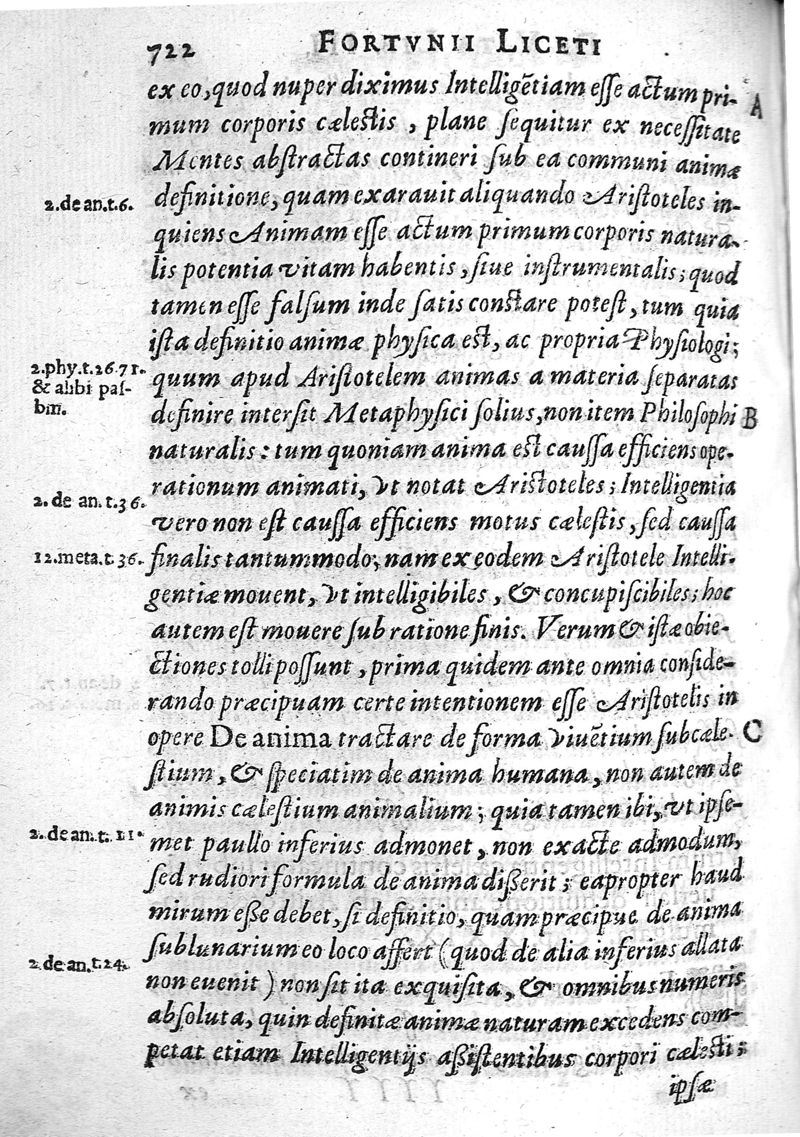 722 FORTVNII LICETI
ex eo, quod nuper diximus Intelligẽtiam esse actum pri-
A
mum corporis cælestis, plane sequitur ex necessitate
Mentes abstractas contineri sub ea communi animæ
definitione, quam exarauit aliquando Aristoteles in-
2. de an. t. 6.
quiens Animam esse actum primum corporis natura-
lis potentia vitam habentis, siue instrumentalis; quod
tamen esse falsum inde satis constare potest, tum quia
ista definitio animæ physica est, ac propria Physiologi;
2. phy. t. 26. 71.
& alibi pas-
bin.
quum apud Aristotelem animas a materia separatas
definire intersit Metaphysici solius, non item Philosophi
B
naturalis: tum quoniam anima est caussa efficiens ope-
rationum animati, vt notat Aristoteles; Intelligentia
2. de an. t. 36.
vero non est caussa efficiens motus cælestis, sed caussa
12. meta. t. 36.
finalis tantummodo; nam ex eodem Aristotele Intelli-
gentiæ mouent, vt intelligibiles, & concupiscibiles; hoc
autem est mouere sub ratione finis. Verum & istæ obie-
ctiones tolli possunt, prima quidem ante omnia conside-
rando præcipuam certe intentionem esse Aristotelis in
opere De anima tractare de forma viuẽtium subcæle-
C
stium, & speciatim de anima humana, non autem de
animis cælestium animalium; quia tamen ibi, vt ipse-
2. de an. t. 11.
met paullo inferius admonet, non exacte admodum,
sed rudiori formula de anima disserit; eapropter haud
mirum esse debet, si definitio, quam præcipue de anima
sublunarium eo loco affert (quod de alia inferius allata
2. de an. t. 24.
non euenit) non sit ita exquisita, & omnibus numeris
absoluta, quin definitæ animæ naturam excedens com-
petat etiam Intelligentijs assistentibus corpori cælesti;
ipsæ